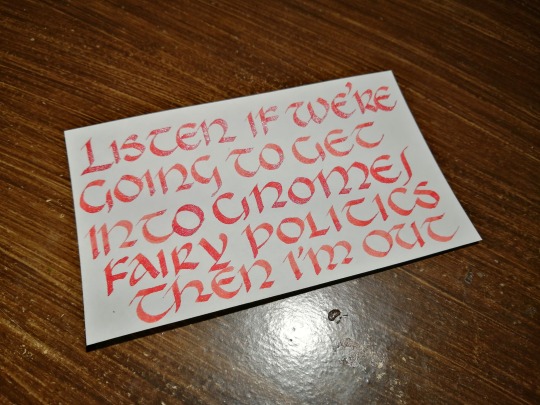 LISTEN IF WE'RE
GOING TO GET
INTO GNOMES
FAIRY POLITICS
THEN I'M OUT